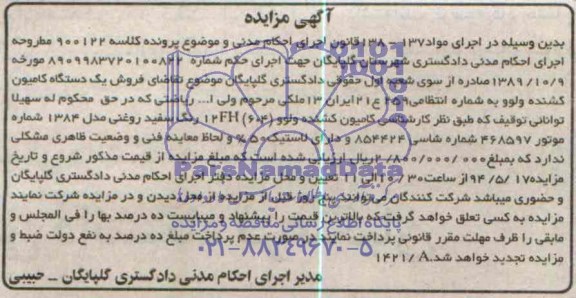 آگهی مزایده
بدین وسیله در اجرای مواد ۱۳۷ - ۱۳۸ قانون اجرای احکام مدنی و موضوع پرونده کلاسه ۹۰۰۱۲۲ مطروحه
اجرای احکام مدنی دادگستری شهرستان گلپایگان جهت اجرای حکم شماره ۸۹۰۹۹۸۳۷۲۰۱۰۰۸۲۲ مورخه
۱۳۸۹/۱۰/۹ صادره از سوی شعبه اول حقوقی دادگستری گلپایگان موضوع تقاضای فروش یک دستگاه کامیون
کشنده ولوو به شماره انتظامی ۲۵۹ ع ۲۱ ایران ۱۳ ملکی مرحوم ولی ا... ریاضتی که در حق محکوم له سهیلا
توانائی توقیف که طبق نظر کارشناسی کامیون کشنده ولوو (۶۰۴) ۱۲FH رنگ سفید روغنی مدل ۱۳۸۴ شماره
موتور ۴۶۸۵۹۷ شماره شاسی ۸۵۴۴۲۴ و دارای لاستیک ۵۰% و لحاظ معاینه فنی و وضعیت ظاهری مشکلی
ندارد که بمبلغ ۲/۸۰۰/۰۰۰/۰۰۰ ریال ارزیابی شده است که مبلغ مزایده از قیمت مذکور شروع و تاریخ
مزایده ۹۴/۵/۱۷ از ساعت ۱۰/۳۰ الی تعیین و محل مزایده دفتر اجرای احکام مدنی دادگستری گلپایگان
و حضوری میباشد شرکت کنندگان می‌توانند پنج روز قبل از مزایده از محل دیدن و در مزایده شرکت نمایند
مزایده به کسی تعلق خواهد گرفت که بالاترین قیمت را پیشنهاد و میبایست ده درصد بها را فی المجلس و
مابقی را ظرف مهلت مقرر قانونی پرداخت نمایند در صورت عدم پرداخت مبلغ ده درصد به نفع دولت ضبط و
مزایده تجدید خواهد شد. ۱۴۲۱/A
مدیر اجرای احکام مدنی دادگستری گلپایگان - حبیبی
ParsNamadData
پایگاه اطلاع رسانی مناقصه و مزایده
۰۲۱-۸۸۳۴۹۶۷۰-۵